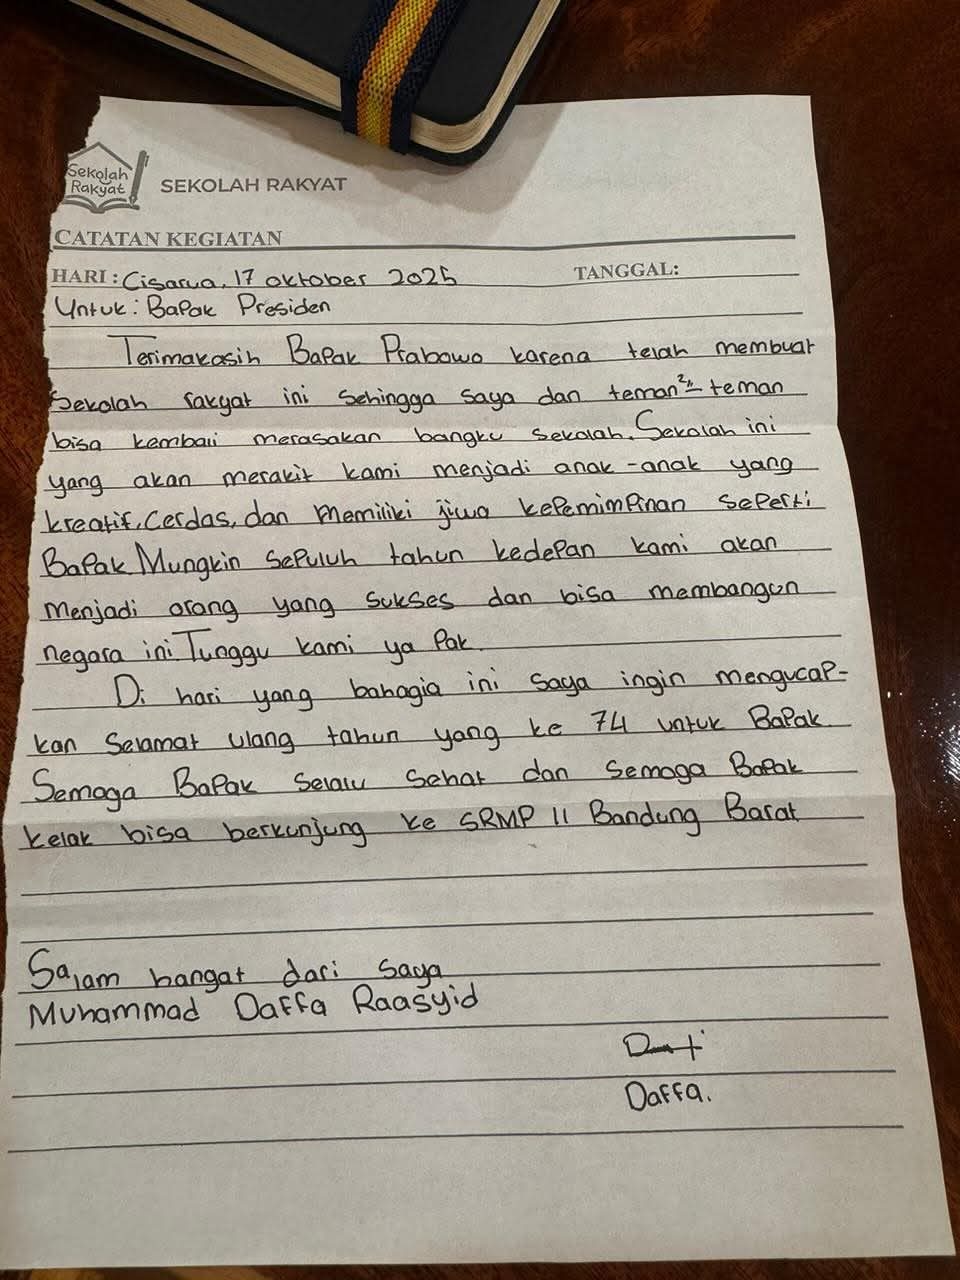 Sekolah
Rakyat
SEKOLAH RAKYAT
CATATAN KEGIATAN
HARI : Cisarua, 17 oktober 2025 TANGGAL:
Untuk : Bapak Presiden
Terimakasih Bapak Prabowo karena telah membuat
Sekolah rakyat ini sehingga saya dan teman²-teman
bisa kembali merasakan bangku sekolah. Sekolah ini
yang akan merakit kami menjadi anak-anak yang
kreatif, cerdas, dan memiliki jiwa kepemimpinan seperti
Bapak. Mungkin sepuluh tahun kedepan kami akan
menjadi orang yang sukses dan bisa membangun
negara ini. Tunggu kami ya Pak.
Di hari yang bahagia ini saya ingin mengucap-
kan selamat ulang tahun yang ke 74 untuk Bapak
Semoga Bapak selalu sehat dan semoga Bapak
kelak bisa berkunjung ke SRMP 11 Bandung Barat
Salam hangat dari saya
Muhammad Daffa Raasyid
Daffa.